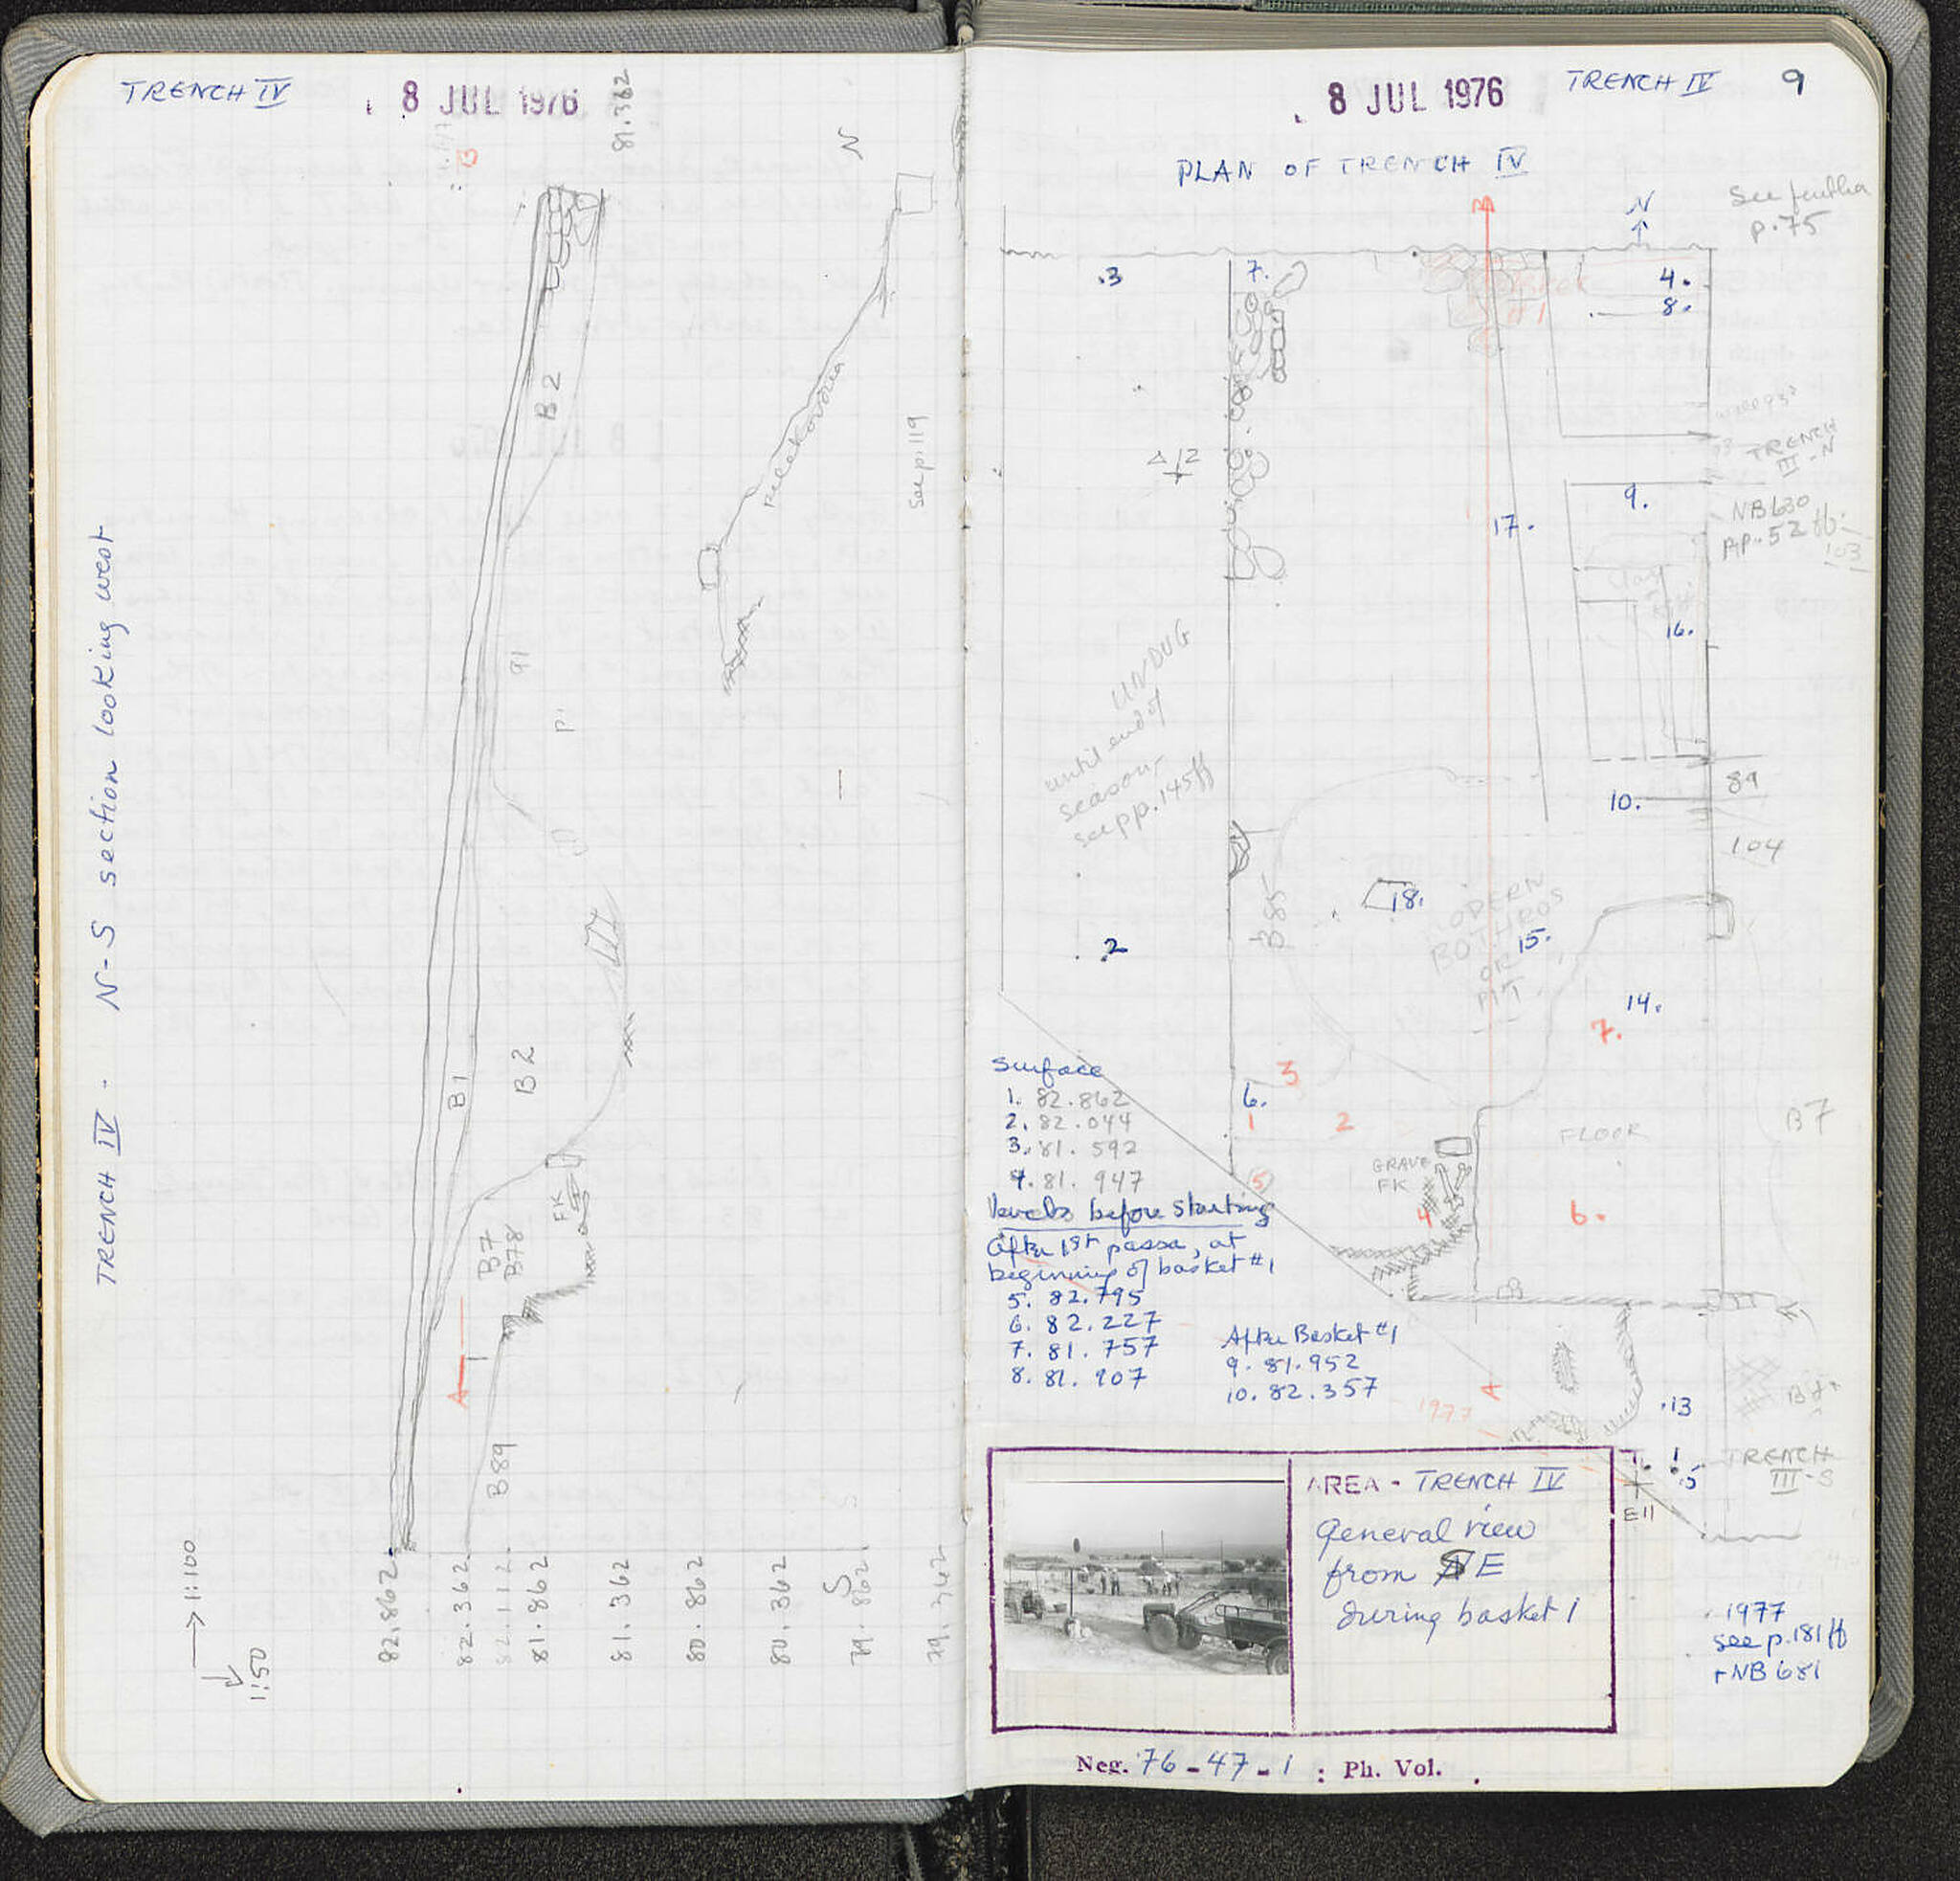 TRENCH IV
8 JUL 1976
81.362
B
N
B2
Pelekoudia
see p. 119
91
N-S section looking west
TRENCH IV.
B1
B2
FK
B7
B78
A
B89
S
1:100
1:50
82.862
82.362
82.112
81.862
81.362
80.862
80.362
79.862
79.362
8 JUL 1976
TRENCH IV 9
PLAN OF TRENCH IV
See further
p. 75
B
N
.3
7.
4.
8.
#1
Δ12
TRENCH
III-N
9.
NB 630
pp. 52 ff.
103
17.
Clay
16.
UNDUG
until end of
season-
see pp. 145ff
89
10.
104
B85
18.
MODERN
BOTHROS
OR
PIT
15.
2
14.
7.
3
6.
1
2
FLOOR
B7
GRAVE
FK
5
4
6.
Surface
1. 82.862
2. 82.044
3. 81.592
4. 81.947
levels before starting
After 1st passa, at
beginning of basket #1
5. 82.795
6. 82.227
7. 81.757
8. 81.907
After Basket #1
9. 81.952
10. 82.357
A
1977
.13
1
.5
TRENCH
III-S
E11
AREA - TRENCH IV
General view
from SE
during basket 1
1977
see p. 181 ff
+ NB 681
Neg. 76-47-1 : Ph. Vol.